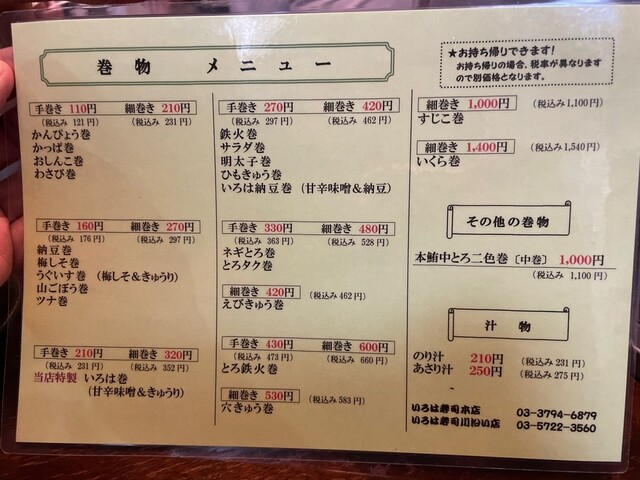 巻物 メニュー
★お持ち帰りできます!
お持ち帰りの場合、税率が異なります
ので別価格となります。
手巻き 110円 細巻き 210円
(税込み 121円) (税込み 231円)
かんぴょう巻
かっぱ巻
おしんこ巻
わさび巻
手巻き 160円 細巻き 270円
(税込み 176円) (税込み 297円)
納豆巻
梅しそ巻
うぐいす巻 (梅しそ&きゅうり)
山ごぼう巻
ツナ巻
手巻き 210円 細巻き 320円
(税込み 231円) (税込み 352円)
当店特製 いろは巻
(甘辛味噌&きゅうり)
手巻き 270円 細巻き 420円
(税込み 297円) (税込み 462円)
鉄火巻
サラダ巻
明太子巻
ひもきゅう巻
いろは納豆巻 (甘辛味噌&納豆)
手巻き 330円 細巻き 480円
(税込み 363円) (税込み 528円)
ネギとろ巻
とろタク巻
細巻き 420円 (税込み462円)
えびきゅう巻
手巻き 430円 細巻き 600円
(税込み 473円) (税込み 660円)
とろ鉄火巻
細巻き 530円 (税込み583円)
穴きゅう巻
細巻き 1,000円 (税込み1,100円)
すじこ巻
細巻き 1,400円 (税込み1,540円)
いくら巻
その他の巻物
本鮪中とろ二色巻 [中巻] 1,000円
(税込み 1,100円)
汁物
のり汁 210円 (税込み231円)
あさり汁 250円 (税込み275円)
いろは寿司本店 03-3794-6879
いろは寿司川沿い店 03-5722-3560